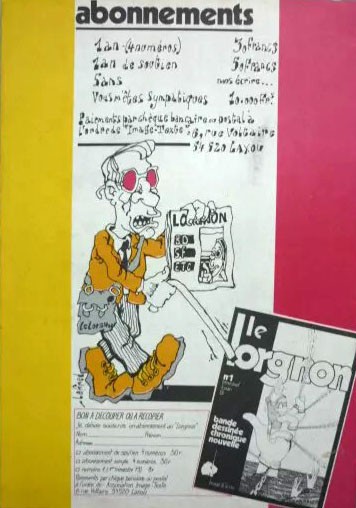 abonnements
1 an (4 numéros) 30 francs
1 an de soutien 50 francs
5 ans nous écrire...
Vous m'êtes sympathiques 10.000 Frs
Paiements par chèque bancaire ou postal à
l'ordre de "Image-Texte", 8, rue Voltaire
54 520 LAXOU
LORGNON
BD
SF
ETC
le
lorgnon
n°1
bande
dessinée
chronique
nouvelle
BON A DECOUPER OU A RECOPIER
Je désire souscrire un abonnement au "Lorgnon"
Nom Prénom
Adresse
abonnement de soutien 4 numéros 50 F
abonnement simple 4 numéros
Paiements par chèque bancaire ou postal
à l'ordre de: Association Image Texte
8 rue Voltaire 54520 Laxou